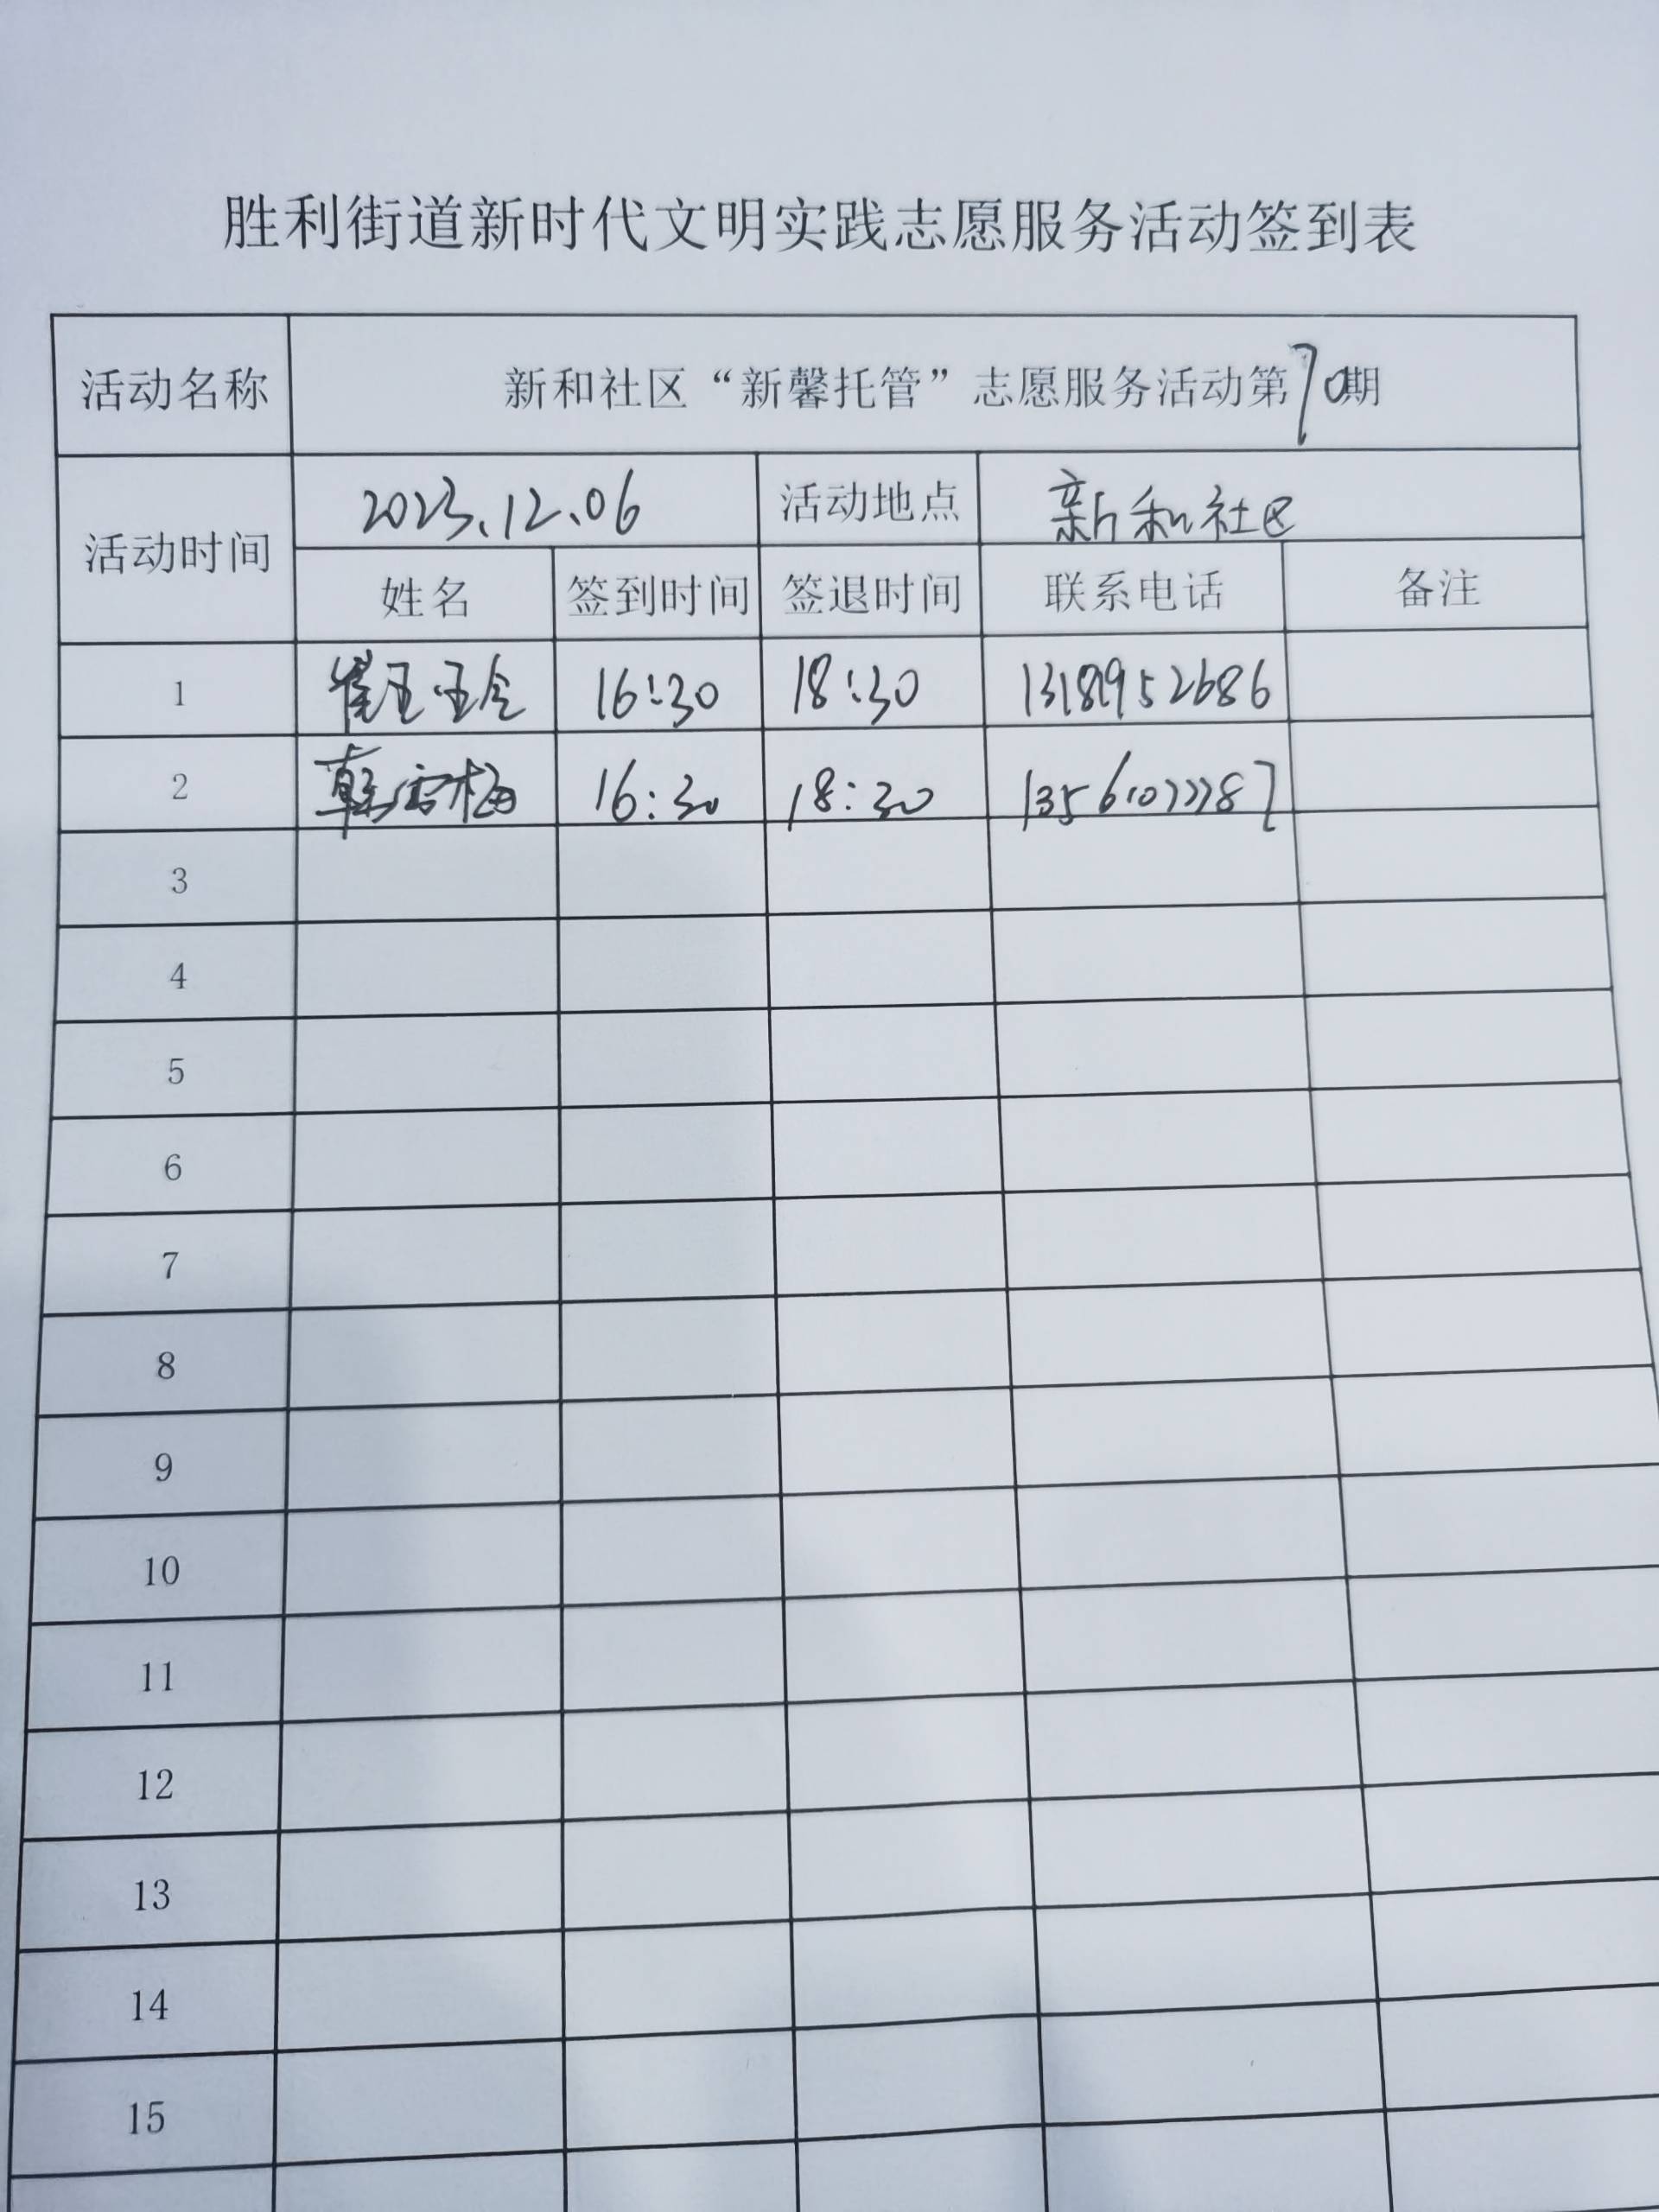 胜利街道新时代文明实践志愿服务活动签到表
活动名称 新和社区“新馨托管”志愿服务活动第70期
活动时间 2023.12.06 活动地点 新和社区
姓名 签到时间 签退时间 联系电话 备注
1 崔玉玲 16:30 18:30
2 韩雪梅 16:30 18:30
3
4
5
6
7
8
9
10
11
12
13
14
15